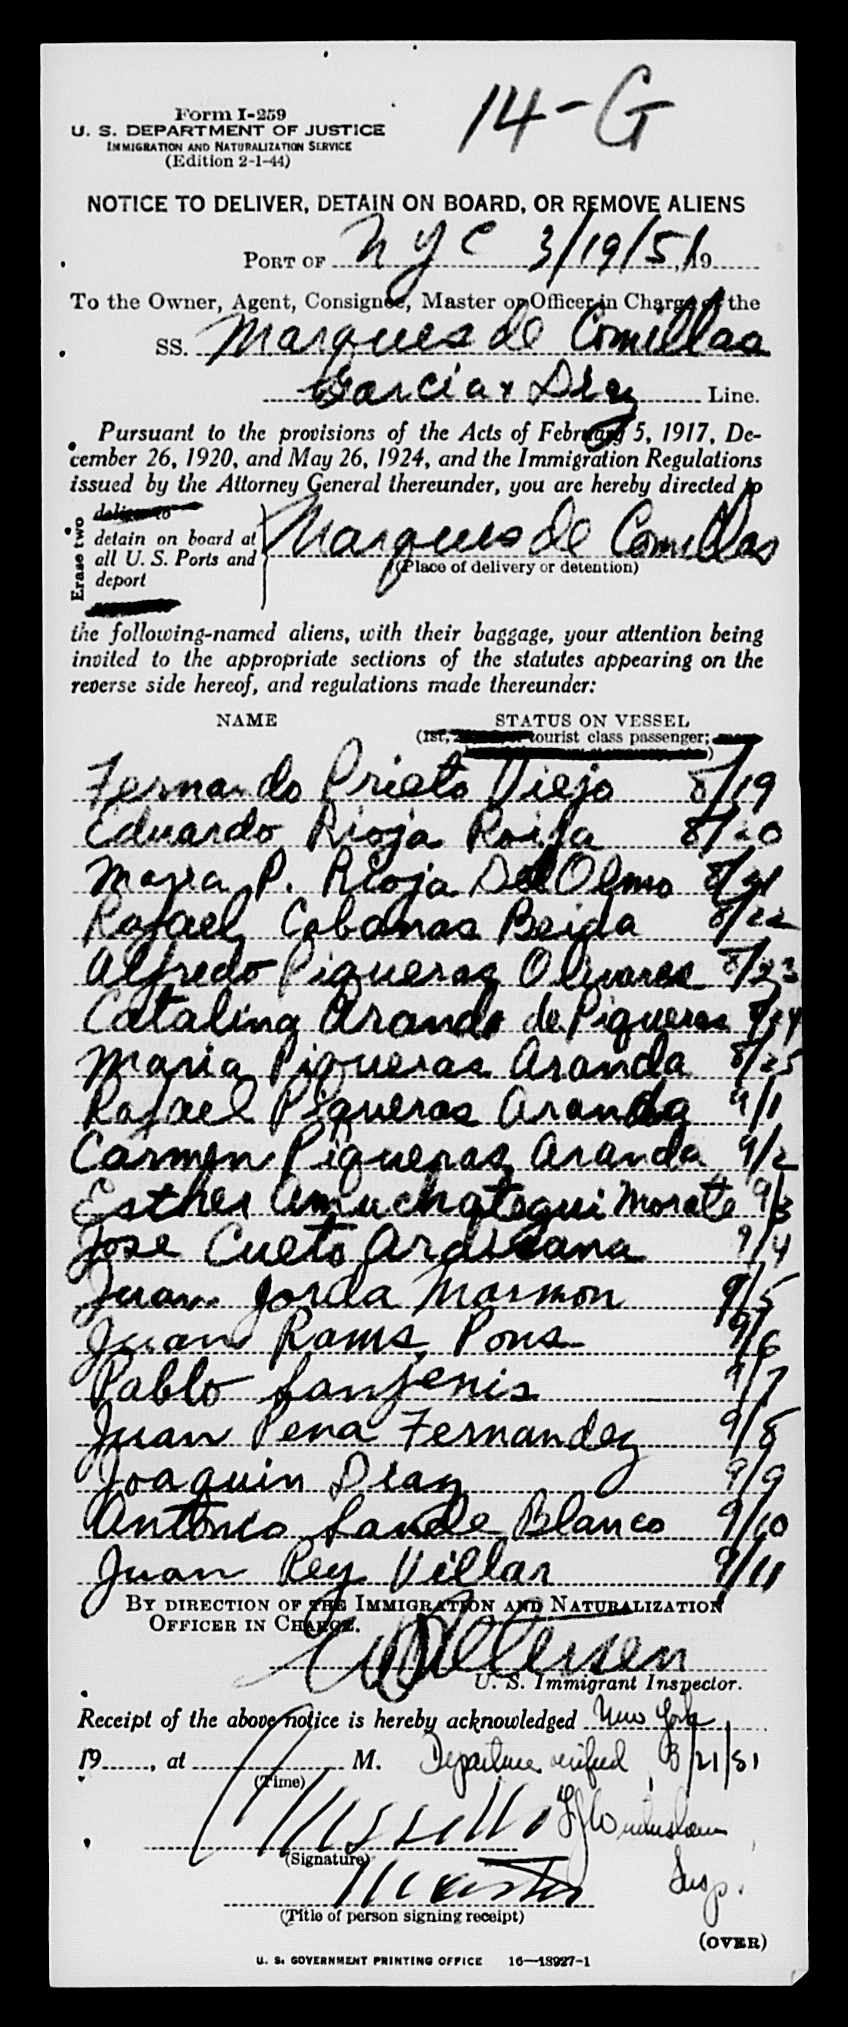 14-G
Form I-259
U. S. DEPARTMENT OF JUSTICE
IMMIGRATION AND NATURALIZATION SERVICE
(Edition 2-1-44)
NOTICE TO DELIVER, DETAIN ON BOARD, OR REMOVE ALIENS
PORT OF NYC 3/19/51, 19
To the Owner, Agent, Consignee, Master or Officer in Charge of the
SS. Marques de Comillas
Garcia & Diaz Line.
Pursuant to the provisions of the Acts of February 5, 1917, De-
cember 26, 1920, and May 26, 1924, and the Immigration Regulations
issued by the Attorney General thereunder, you are hereby directed to
Erase two
deliver to
detain on board at
all U. S. Ports and
deport
Marques de Comillas
(Place of delivery or detention)
the following-named aliens, with their baggage, your attention being
invited to the appropriate sections of the statutes appearing on the
reverse side hereof, and regulations made thereunder:
NAME STATUS ON VESSEL
(1st, tourist class passenger;
)
Fernando Prieto Viejo 8/19
Eduardo Rioja Roija 8/20
Maria P. Rioja Del Olmo 8/21
Rafael Cabanas Beida 8/22
Alfredo Piqueras Olivares 8/23
Catalina Aranda de Piqueras 8/24
Maria Piqueras Aranda 8/25
Rafael Piqueras Aranda 9/1
Carmen Piqueras Aranda 9/2
Esther Amuchategui Morate 9/3
Jose Cueto Ardisana 9/4
Juan Jorda Marmon 9/5
Juan Rams Pons 9/6
Pablo Sanjenis 9/7
Juan Pena Fernandez 9/8
Joaquin Diaz 9/9
Antonio Sande Blanco 9/10
Juan Rey Villar 9/11
BY DIRECTION OF THE IMMIGRATION AND NATURALIZATION
OFFICER IN CHARGE.
Petersen
U. S. Immigrant Inspector.
Receipt of the above notice is hereby acknowledged New York
19, at M. Departure verified 3/21/51
(Time)
(Signature)
Insp.
Master
(Title of person signing receipt)
(OVER)
U. S. GOVERNMENT PRINTING OFFICE 16—18927-1